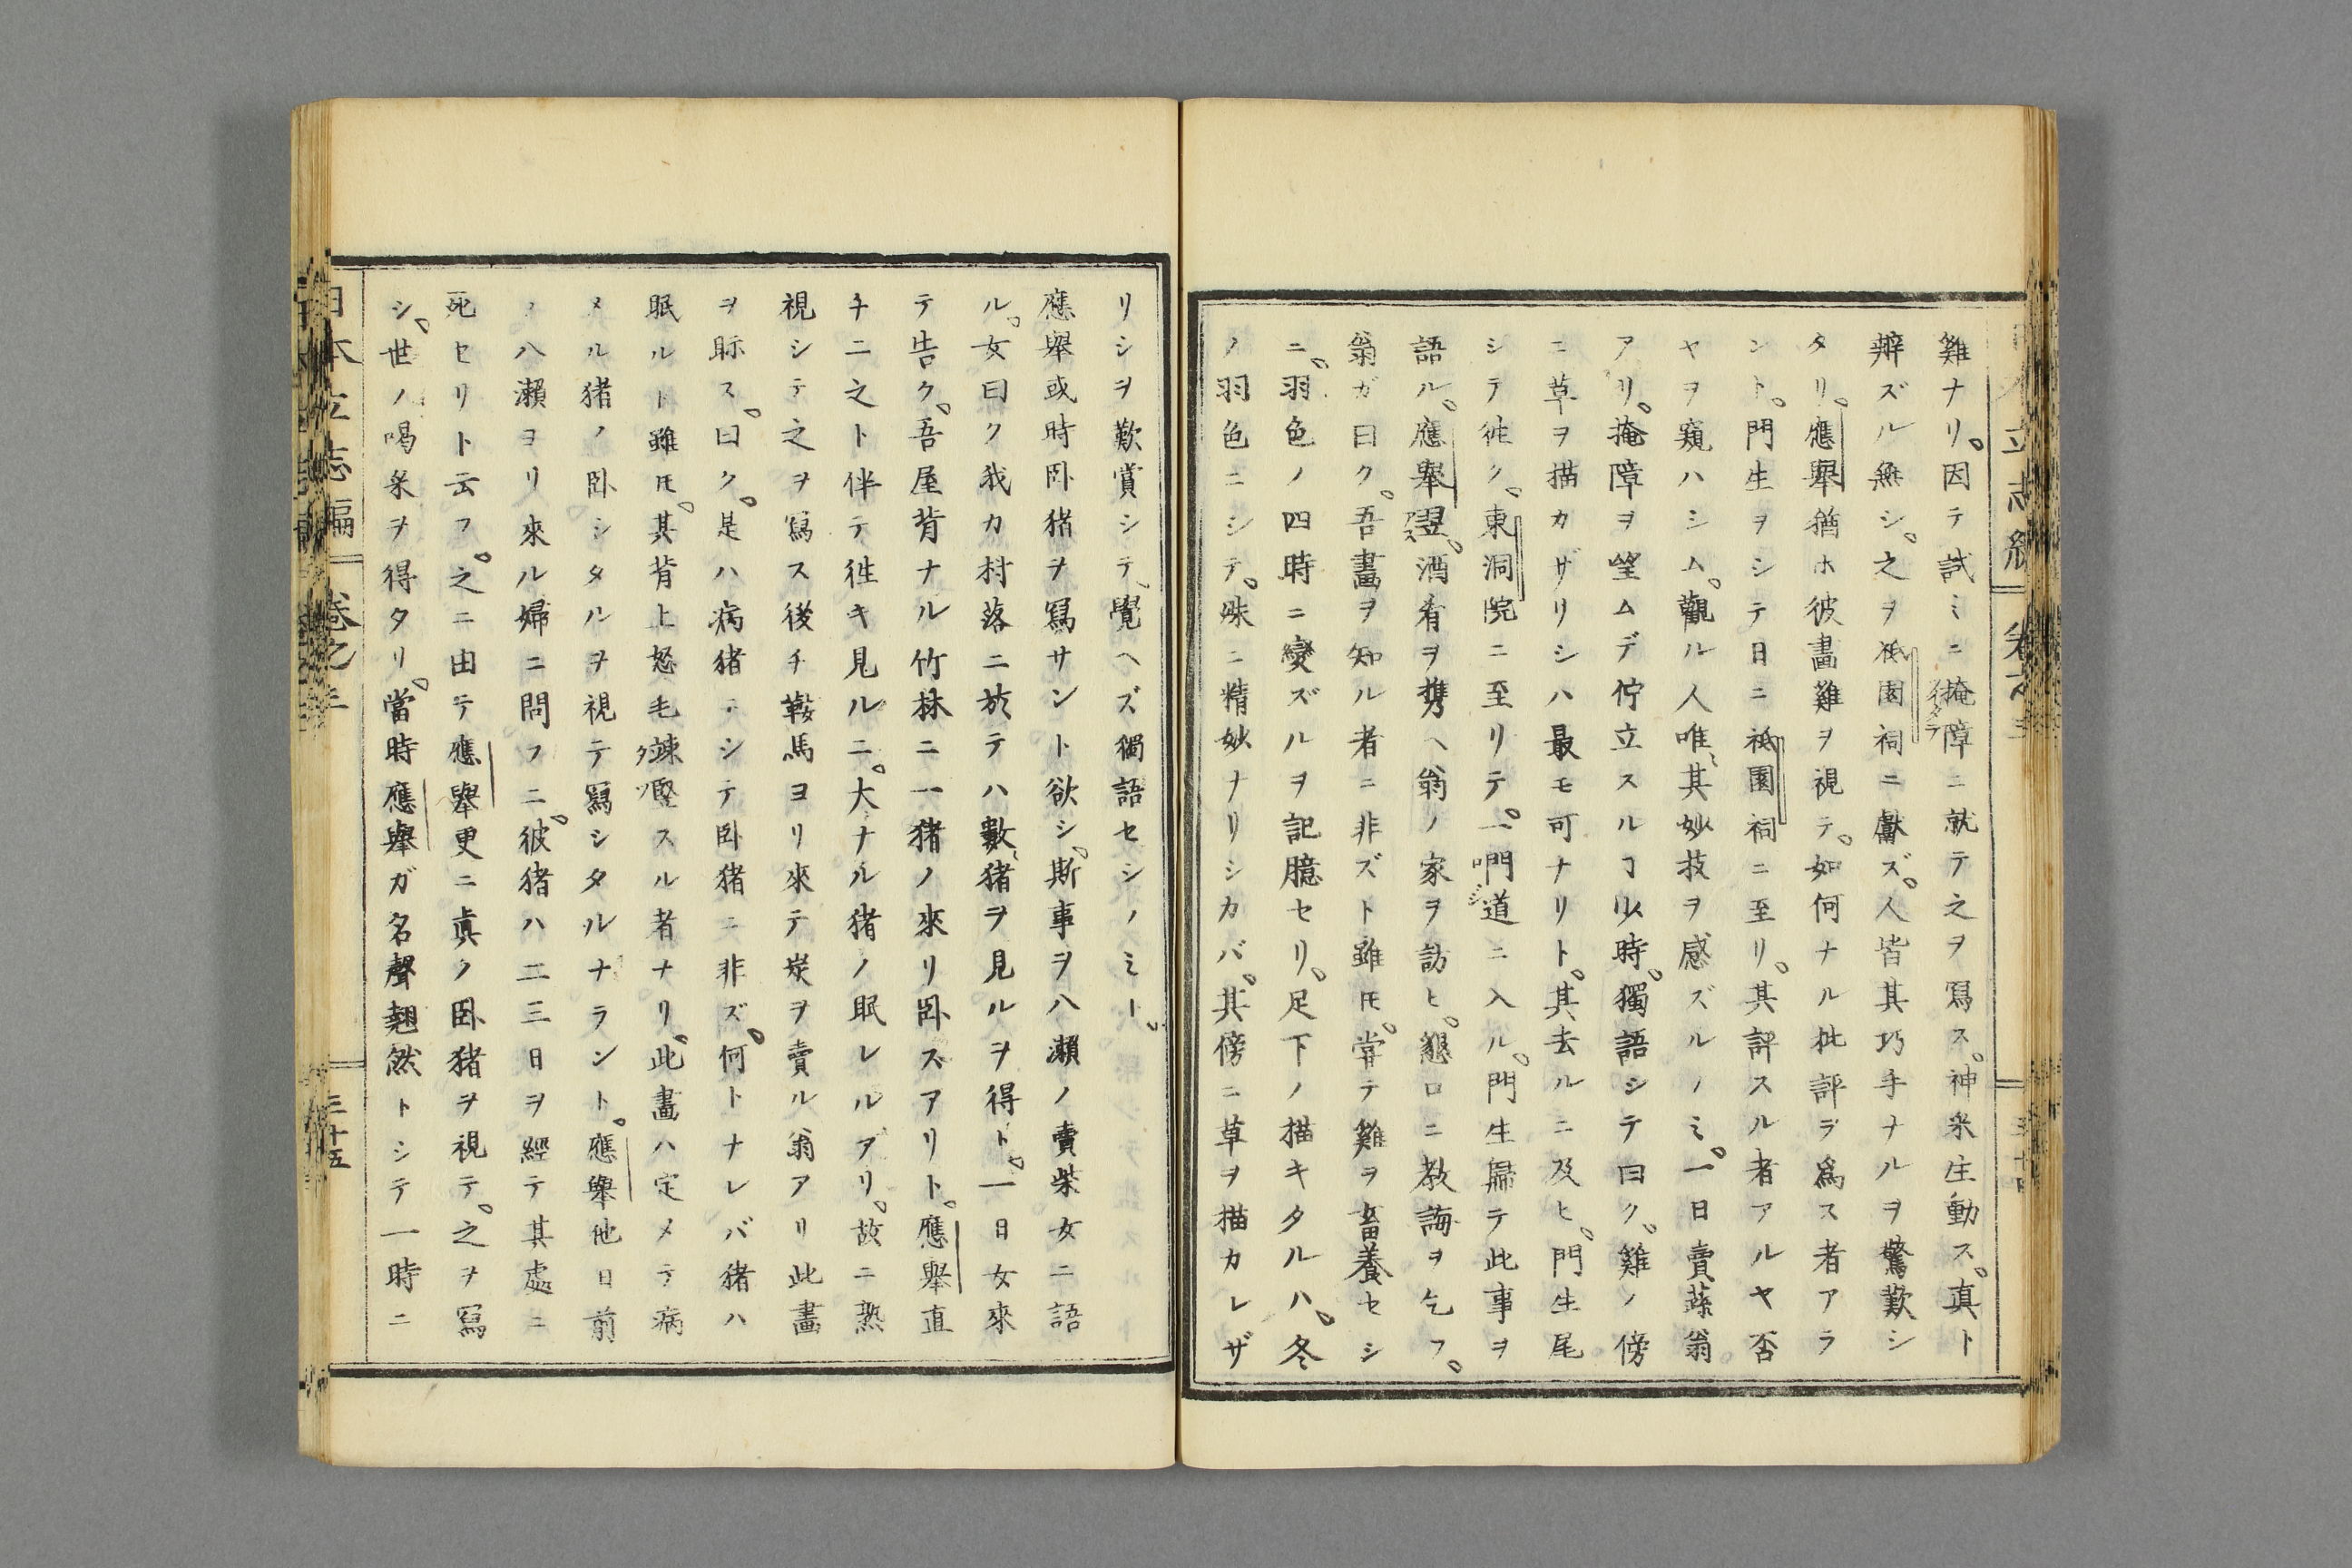 難ナリ。因テ試ミニ掩障ニ就テ之ヲ寫ス。神采生動ス。真ト
辨ズル無シ。之ヲ祇園祠ニ獻ズ。人皆其巧手ナルヲ驚歎シ
タリ。應擧猶ホ彼畵雞ヲ視テ。如何ナル批評ヲ爲ス者アラ
ント。門生ヲシテ日ニ祇園祠ニ至リ。其評スル者アルヤ否
ヤヲ窺ハシム。觀ル人唯〻其妙技ヲ感ズルノミ。一日賣蔬翁
アリ。掩障ヲ望ムデ佇立スルヿ少時。獨語シテ曰ク。雞ノ傍
ニ草ヲ描カザリシハ最モ可ナリト。其去ルニ及ヒ。門生尾
シテ徃ク。東洞院ニ至リテ。一門道ニ入ル。門生歸テ此事ヲ
語ル。應擧翌。酒肴ヲ携ヘ翁ノ家ヲ訪ヒ。懇ロニ教誨ヲ乞フ。
翁ガ曰ク。吾畵ヲ知ル者ニ非ズト雖モ。嘗テ雞ヲ畜養セシ
ニ。羽色ノ四時ニ變ズルヲ記臆セリ。足下ノ描キタルハ。冬
ノ羽色ニシテ。殊ニ精妙ナリシカバ。其傍ニ草ヲ描カレザ
リシヲ歎賞シテ、覺ヘズ獨語セシノミト。
應擧或時卧猪ヲ寫サント欲シ。斯事ヲ八瀬ノ賣柴女ニ語
ル。女曰ク我カ村落ニ於テハ數〻猪ヲ見ルヲ得ト。一日女來
テ告ク。吾屋背ナル竹林ニ一猪ノ來リ卧ズアリト。應擧直
チニ之ト伴テ徃キ見ルニ。大ナル猪ノ眠レルアリ。故ニ熟
視シテ之ヲ寫ス後チ鞍馬ヨリ來テ炭ヲ賣ル翁アリ此畵
ヲ眎ス。曰ク。是ハ病猪ニシテ卧猪ニ非ズ。何トナレバ猪ハ
眠ルト雖モ。其背上怒毛竦竪スル者ナリ。此畵ハ定メテ病
メル猪ノ卧シタルヲ視テ寫シタルナラント。應擧他日前
ノ八瀬ヨリ來ル婦ニ問フニ。彼猪ハ二三日ヲ經テ其處ニ
死セリト云フ。之ニ由テ應擧更ニ真ノ卧猪ヲ視テ。之ヲ寫
シ。世ノ喝采ヲ得タリ。當時應擧ガ名聲翹然トシテ一時ニ
日本立志編 卷之三 三十五